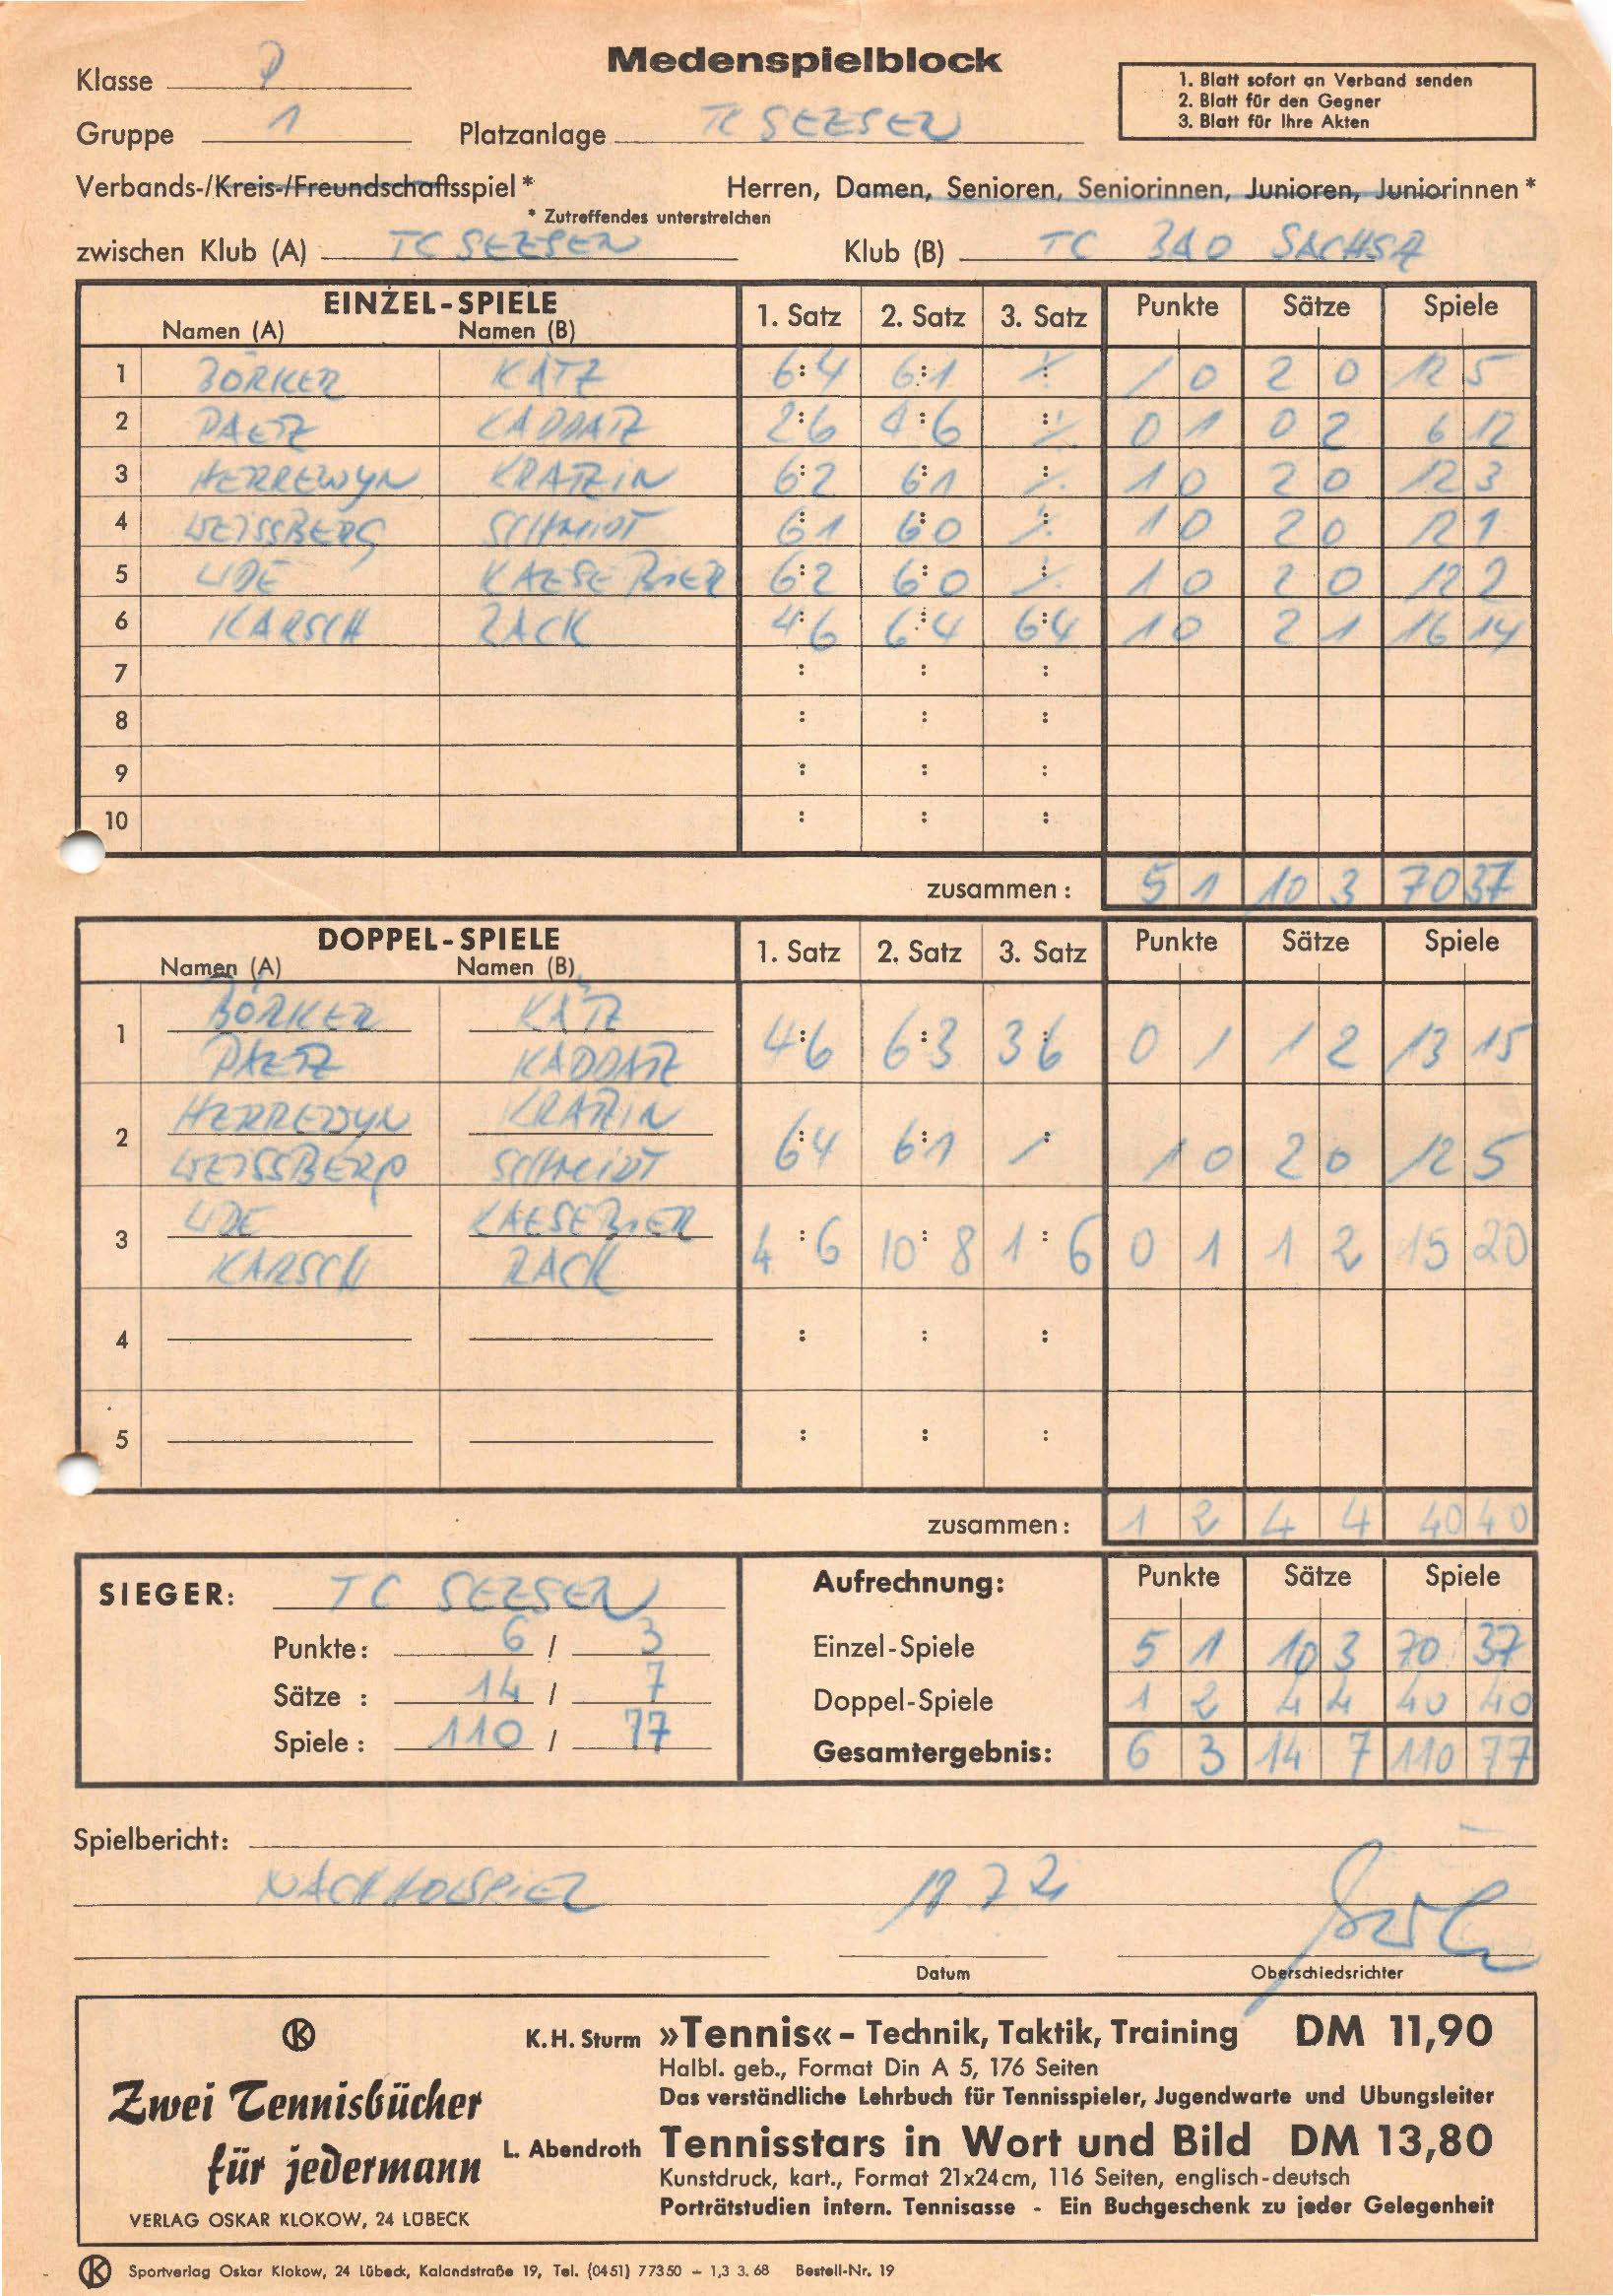 Medenspielblock
Klasse
Gruppe 1 Platzanlage TC SEESEN
1. Blatt sofort an Verband senden
2. Blatt für den Gegner
3. Blatt für Ihre Akten
Verbands-/Kreis-/Freundschaftsspiel* Herren, Damen, Senioren, Seniorinnen, Junioren, Juniorinnen*
* Zutreffendes unterstreichen
zwischen Klub (A) TC SEESEN Klub (B) TC BAD SACHSA
EINZEL-SPIELE 1. Satz 2. Satz 3. Satz Punkte Sätze Spiele
Namen (A) Namen (B)
1 BÖRKER KATZ 6:4 6:1 : 1 0 2 0 12 5
2 PAETZ KADDATZ 2:6 4:6 : 0 1 0 2 6 12
3 HERREWYN KRATZIN 6:2 6:1 : 1 0 2 0 12 3
4 WEISSBERG SCHMIDT 6:1 6:0 : 1 0 2 0 12 1
5 UDE KAESEBIER 6:2 6:0 : 1 0 2 0 12 2
6 KARSCH ZACK 4:6 6:4 6:4 1 0 2 1 16 14
7 : : :
8 : : :
9 : : :
10 : : :
zusammen: 5 1 10 3 70 37
DOPPEL-SPIELE 1. Satz 2. Satz 3. Satz Punkte Sätze Spiele
Namen (A) Namen (B)
BÖRKER KATZ
1 4:6 6:3 3:6 0 1 1 2 13 15
PAETZ KADDATZ
HERREWYN KRATZIN
2 6:4 6:1 : 1 0 2 0 12 5
WEISSBERG SCHMIDT
UDE KAESEBIER
3 4:6 10:8 1:6 0 1 1 2 15 20
KARSCH ZACK
4 : : :
5 : : :
zusammen: 1 2 4 4 40 40
SIEGER: TC SEESEN Aufrechnung: Punkte Sätze Spiele
Punkte: 6 / 3 Einzel-Spiele 5 1 10 3 70 37
Sätze : 14 / 7 Doppel-Spiele 1 2 4 4 40 40
Spiele : 110 / 77 Gesamtergebnis: 6 3 14 7 110 77
Spielbericht:
NACHHOLSPIEL
Datum Oberschiedsrichter
K
K. H. Sturm »Tennis« – Technik, Taktik, Training DM 11,90
Halbl. geb., Format Din A 5, 176 Seiten
Das verständliche Lehrbuch für Tennisspieler, Jugendwarte und Übungsleiter
Zwei Tennisbücher
für jedermann
VERLAG OSKAR KLOKOW, 24 LÜBECK
L. Abendroth Tennisstars in Wort und Bild DM 13,80
Kunstdruck, kart., Format 21x24cm, 116 Seiten, englisch-deutsch
Porträtstudien intern. Tennisasse - Ein Buchgeschenk zu jeder Gelegenheit
K Sportverlag Oskar Klokow, 24 Lübeck, Kalandstraße 19, Tel. (0451) 77350 – 1,3 3. 68 Bestell-Nr. 19